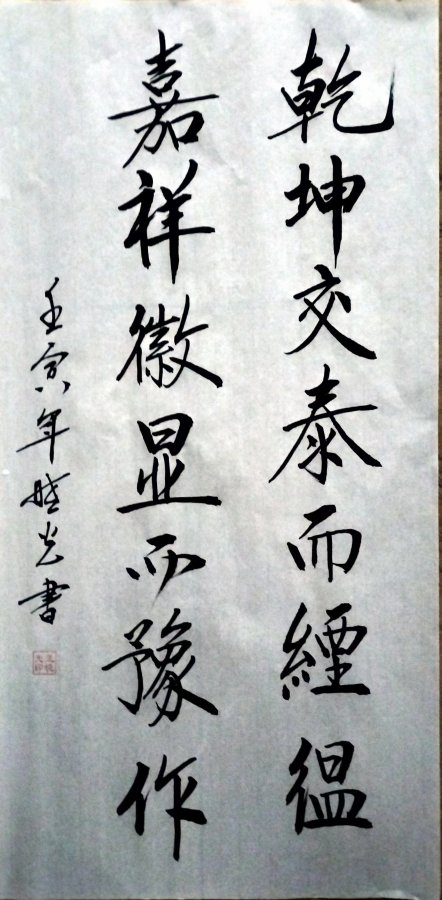 乾坤交泰而緸緼
嘉祥徽显而豫作
壬寅年晓光書